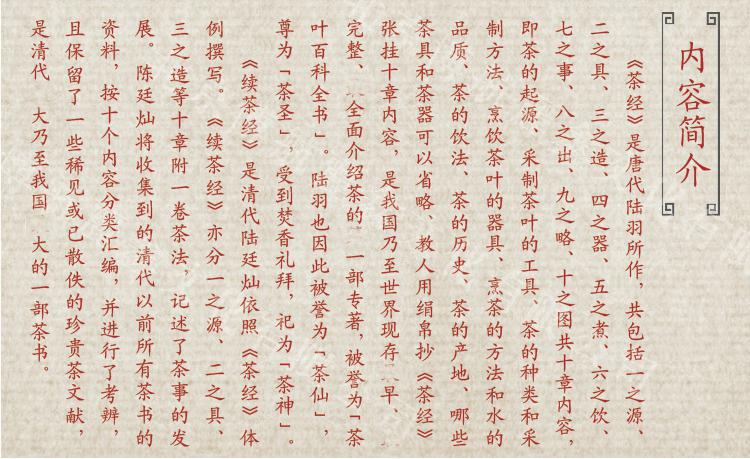 内容简介
《茶经》是唐代陆羽所作，共包括一之源、
二之具、三之造、四之器、五之煮、六之饮、
七之事、八之出、九之略、十之图共十章内容，
即茶的起源、采制茶叶的工具、茶的种类和采
制方法、烹饮茶叶的器具、烹茶的方法和水的
品质、茶的饮法、茶的历史、茶的产地、哪些
茶具和茶器可以省略、教人用绢帛抄《茶经》
张挂十章内容，是我国乃至世界现存 早、
完整、 全面介绍茶的 一部专著，被誉为「茶
叶百科全书」。陆羽也因此被誉为「茶仙」，
尊为「茶圣」，受到焚香礼拜，祀为「茶神」。
《续茶经》是清代陆廷灿依照《茶经》体
例撰写。《续茶经》亦分一之源、二之具、
三之造等十章附一卷茶法，记述了茶事的发
展。陈廷灿将收集到的清代以前所有茶书的
资料，按十个内容分类汇编，并进行了考辨，
且保留了一些稀见或已散佚的珍贵茶文献，
是清代 大乃至我国 大的一部茶书。